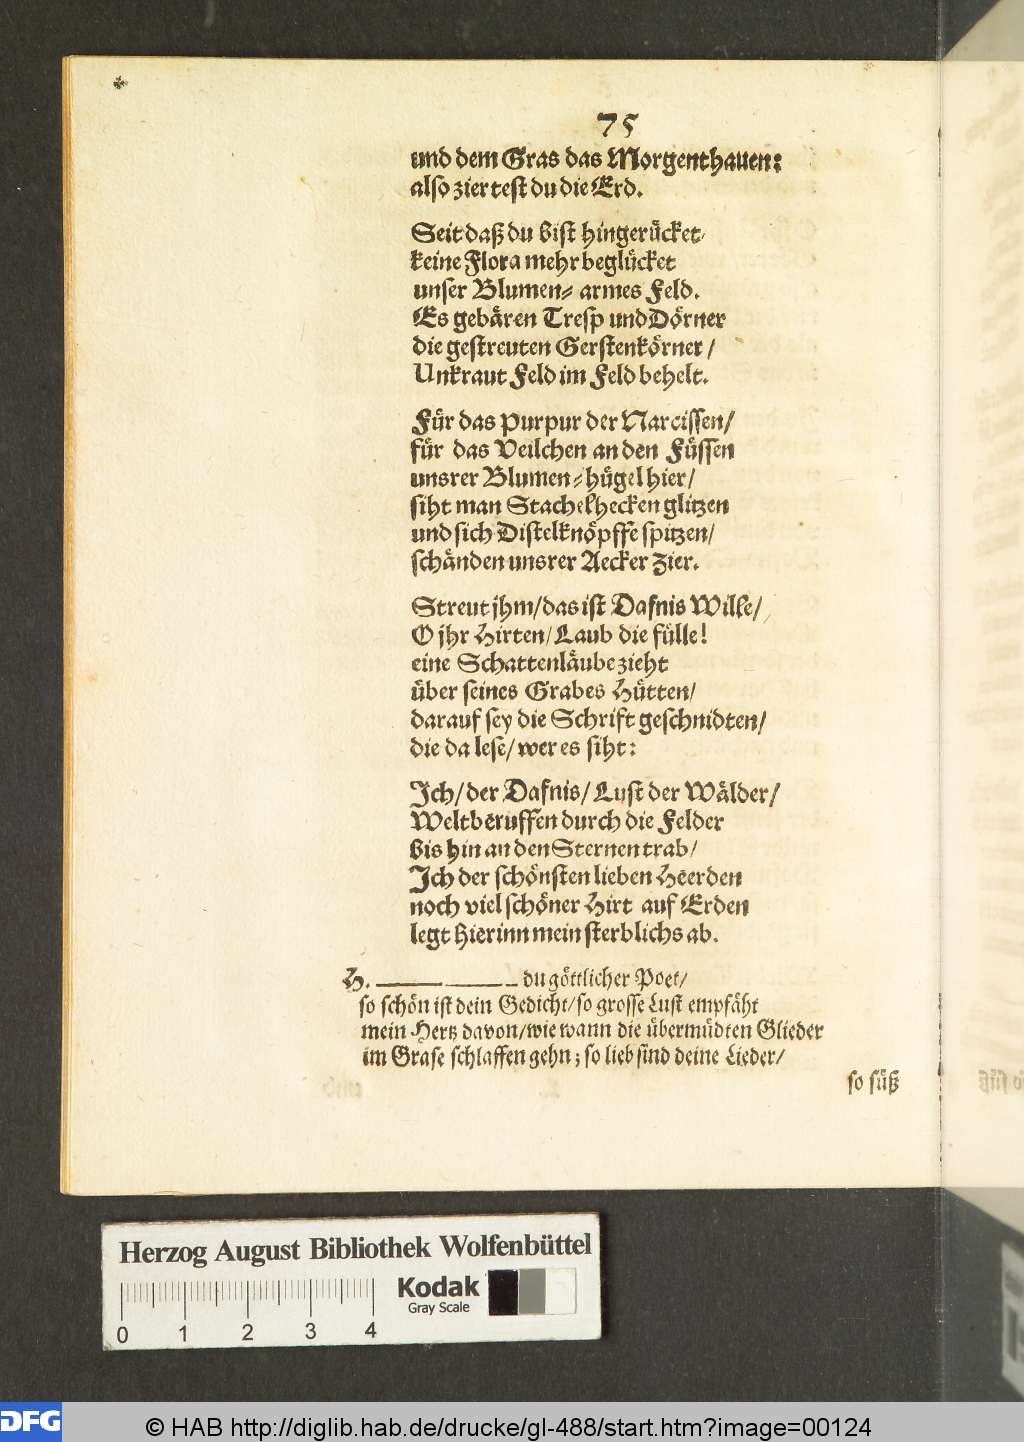 75
und dem Gras das Morgenthauen:
also ziertest du die Erd.
Seit daß du bist hingerücket/
keine Flora mehr beglücket
unser Blumen-armes Feld.
Es gebären Tresp und Dörner
die gestreuten Gerstenkörner /
Unkraut Feld im Feld behelt.
Für das Purpur der Narcissen/
für das Veilchen an den Füssen
unsrer Blumen-hügel hier/
siht man Stachelhecken glitzen
und sich Distelknöpffe spitzen/
schänden unsrer Aecker Zier.
Streut jhm/das ist Dafnis Wille/
O jhr Hirten/Laub die fülle!
eine Schattenläube zieht
über seines Grabes Hütten/
darauf sey die Schrift geschnidten/
die da lese/wer es siht:
Ich/der Dafnis/Lust der Wälder/
Weltberuffen durch die Felder
bis hin an den Sternen trab/
Ich der schönsten lieben Heerden
noch viel schöner Hirt auf Erden
legt hierinn mein sterblichs ab.
H. ——— du göttlicher Poet/
so schön ist dein Gedicht/so grosse Lust empfäht
mein Hertz davon/wie wann die übermüdten Glieder
im Grase schlaffen gehn; so lieb sind deine Lieder/
so süß
Herzog August Bibliothek Wolfenbüttel
Kodak
Gray Scale
0 1 2 3 4
DFG
© HAB http://diglib.hab.de/drucke/gl-488/start.htm?image=00124